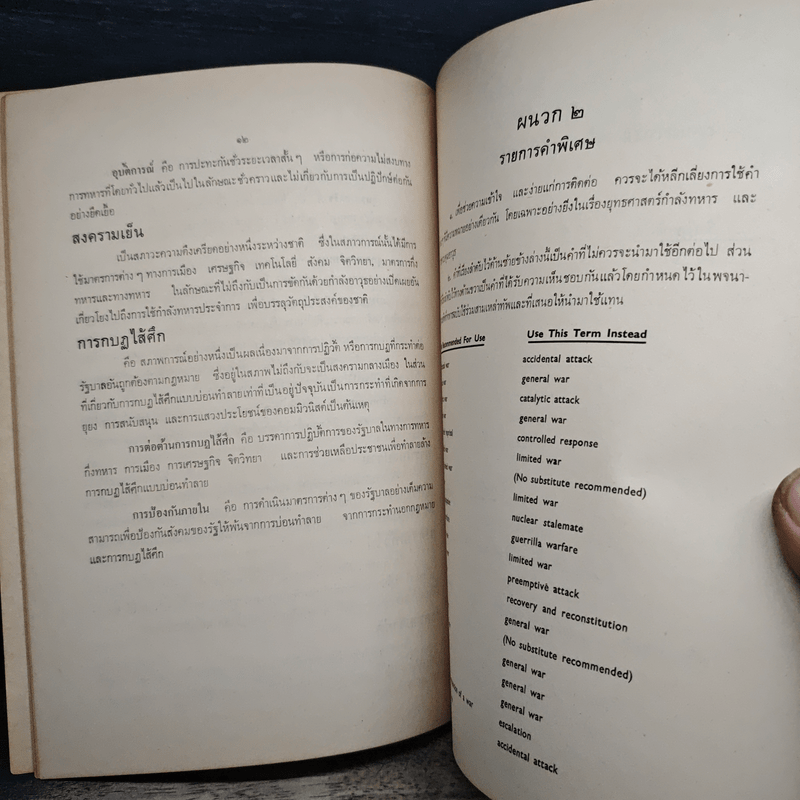 ๑๒
อุบัติการณ์ คือ การปะทะกันชั่วระยะเวลาสั้น ๆ หรือการก่อความไม่สงบทาง
การทหารที่โดยทั่วไปแล้วเป็นไปในลักษณะชั่วคราวและไม่เกี่ยวกับการเป็นปฏิปักษ์ต่อกัน
อย่างยืดเยื้อ
สงครามเย็น
เป็นสภาวะความตึงเครียดอย่างหนึ่งระหว่างชาติ ซึ่งในสภาวการณ์นั้นได้มีการ
ใช้มาตรการต่าง ๆ ทางการเมือง เศรษฐกิจ เทคโนโลยี สังคม จิตวิทยา, มาตรการกึ่ง
ทหารและทางทหาร ในลักษณะที่ไม่ถึงกับเป็นการขัดกันด้วยกำลังอาวุธอย่างเปิดเผยอัน
เกี่ยวโยงไปถึงการใช้กำลังทหารประจำการ เพื่อบรรลุวัตถุประสงค์ของชาติ
การกบฏไส้ศึก
คือ สภาพการณ์อย่างหนึ่งเป็นผลเนื่องมาจากการปฏิวัติ หรือการกบฏที่กระทำต่อ
รัฐบาลอันถูกต้องตามกฎหมาย ซึ่งอยู่ในสภาพไม่ถึงกับจะเป็นสงครามกลางเมือง ในส่วน
ที่เกี่ยวกับการกบฏไส้ศึกแบบบ่อนทำลายเท่าที่เป็นอยู่ปัจจุบันเป็นการกระทำที่เกิดจากการ
ยุยง การสนับสนุน และการแสวงประโยชน์ของคอมมิวนิสต์เป็นต้นเหตุ
การต่อต้านการกบฏไส้ศึก คือ บรรดาการปฏิบัติการของรัฐบาลในทางการทหาร
กึ่งทหาร การเมือง การเศรษฐกิจ จิตวิทยา และการช่วยเหลือประชาชนเพื่อทำลายล้าง
การกบฏไส้ศึกแบบบ่อนทำลาย
การป้องกันภายใน คือ การดำเนินมาตรการต่าง ๆ ของรัฐบาลอย่างเต็มความ
สามารถเพื่อป้องกันสังคมของรัฐให้พ้นจากการบ่อนทำลาย จากการกระทำนอกกฎหมาย
และการกบฏไส้ศึก
ผนวก ๒
รายการคำพิเศษ
๑. เพื่อช่วยความเข้าใจ และง่ายแก่การติดต่อ ควรจะได้หลีกเลี่ยงการใช้คำ
ความหมายอย่างเดียวกัน โดยเฉพาะอย่างยิ่งในเรื่องยุทธศาสตร์กำลังทหาร และ
๒. คำที่เรียงลำดับไว้ด้านซ้ายข้างล่างนี้เป็นคำที่ไม่ควรจะนำมาใช้อีกต่อไป ส่วน
ไว้ทางด้านขวาเป็นคำที่ได้รับความเห็นชอบกันแล้วโดยกำหนดไว้ในพจนา-
ร่วมสามเหล่าทัพและที่เสนอให้นำมาใช้แทน
Recommended For Use
Use This Term Instead
accidental attack
general war
catalytic attack
general war
controlled response
limited war
(No substitute recommended)
limited war
nuclear stalemate
guerrilla warfare
limited war
preemptive attack
recovery and reconstitution
general war
(No substitute recommended)
general war
general war
of a war
general war
escalation
accidental attack